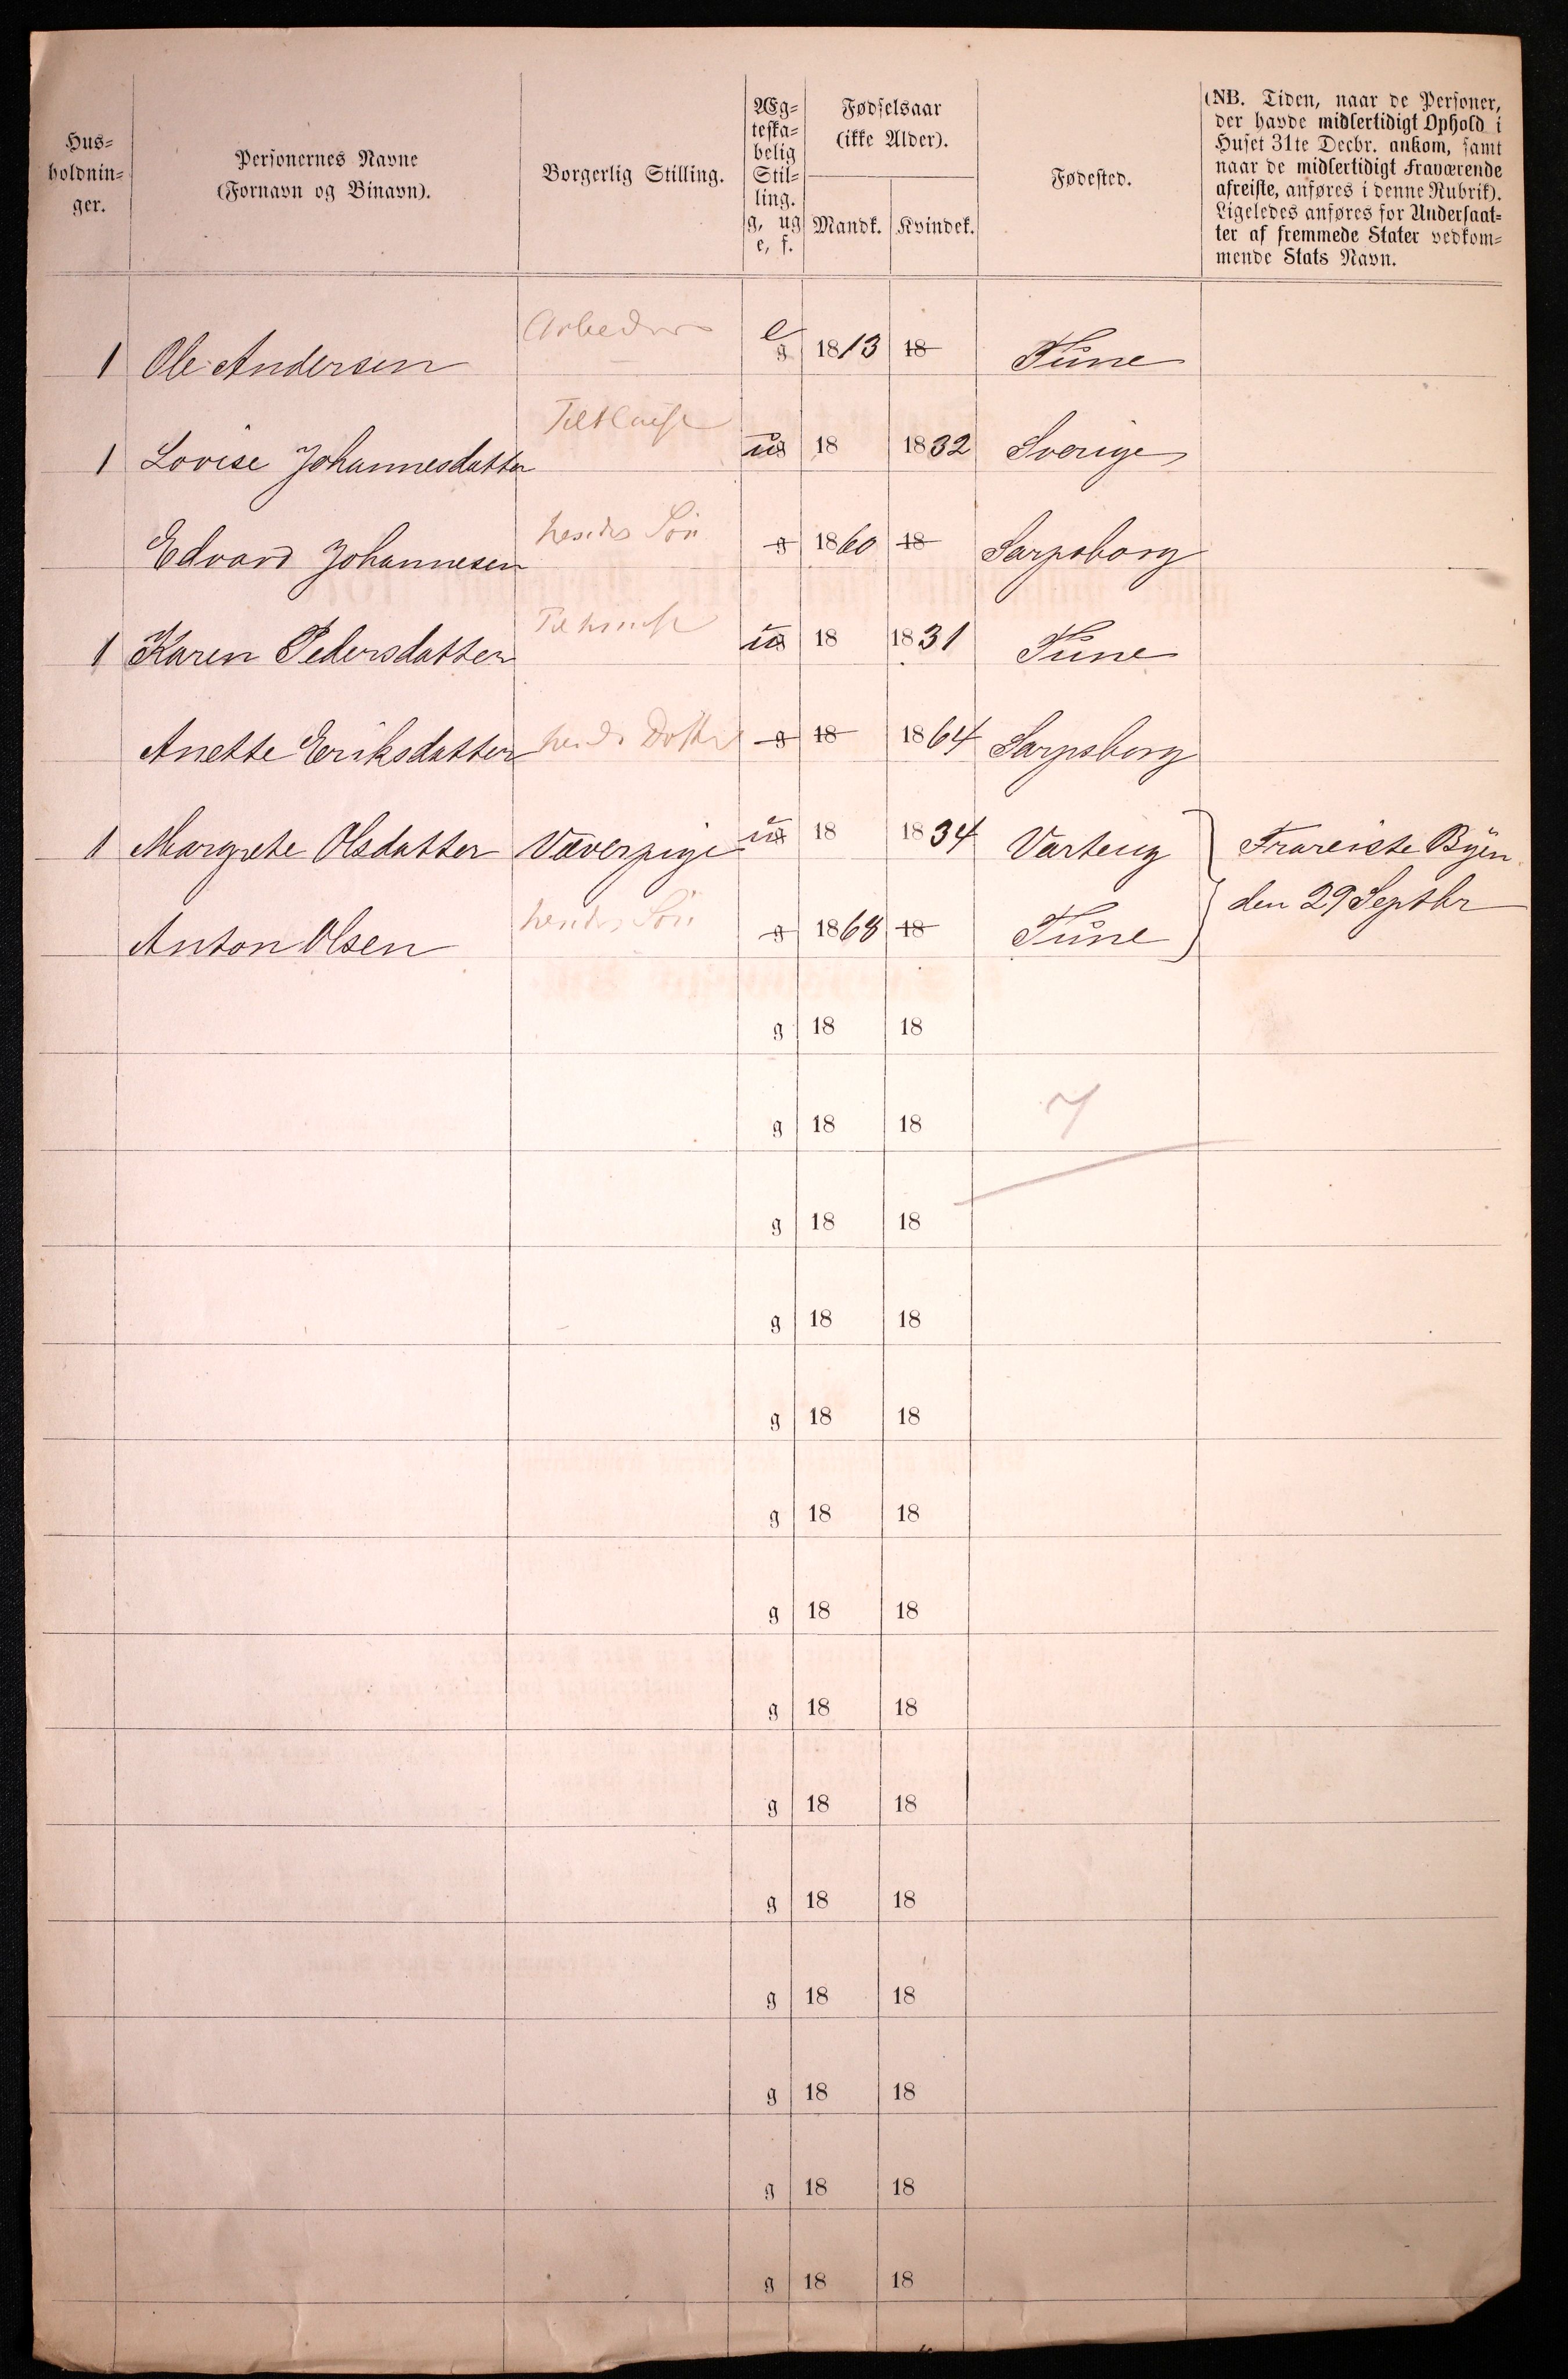 Hus=
holdnin=
ger.
Personernes Navne
(Fornavn og Binavn).
Borgerlig Stilling.
Æg=
teska=
belig
Stil=
ling.
g, ug
e, f.
Fødselsaar
(ikke Alder).
Mandk. Kvindek.
Fødested.
(NB. Tiden, naar de Personer,
der havde midlertidigt Ophold i
Huset 31te Decbr. ankom, samt
naar de midlertidigt Fraværende
afreiste, anføres i denne Rubrik).
Ligeledes anføres for Undersaat=
ter af fremmede Stater vedkom=
mende Stats Navn.
1 Ole Andersen Arbeider e g 1813 18 Tune
1 Lovise Johannesdatter ug 18 1832 Sverige
Edvard Johannesen hendes Søn g 1860 18 Sarpsborg
1 Karen Pedersdatter ug 18 1831 Tune
Anette Eriksdatter hendes Datter g 18 1864 Sarpsborg
1 Margrete Olsdatter Væverpige ug 18 1834 Varteig Frareiste Byen
den 29 Septbr
Anton Olsen hendes Søn g 1868 18 Tune
g 18 18
g 18 18 7
g 18 18
g 18 18
g 18 18
g 18 18
g 18 18
g 18 18
g 18 18
g 18 18
g 18 18
g 18 18
g 18 18
g 18 18